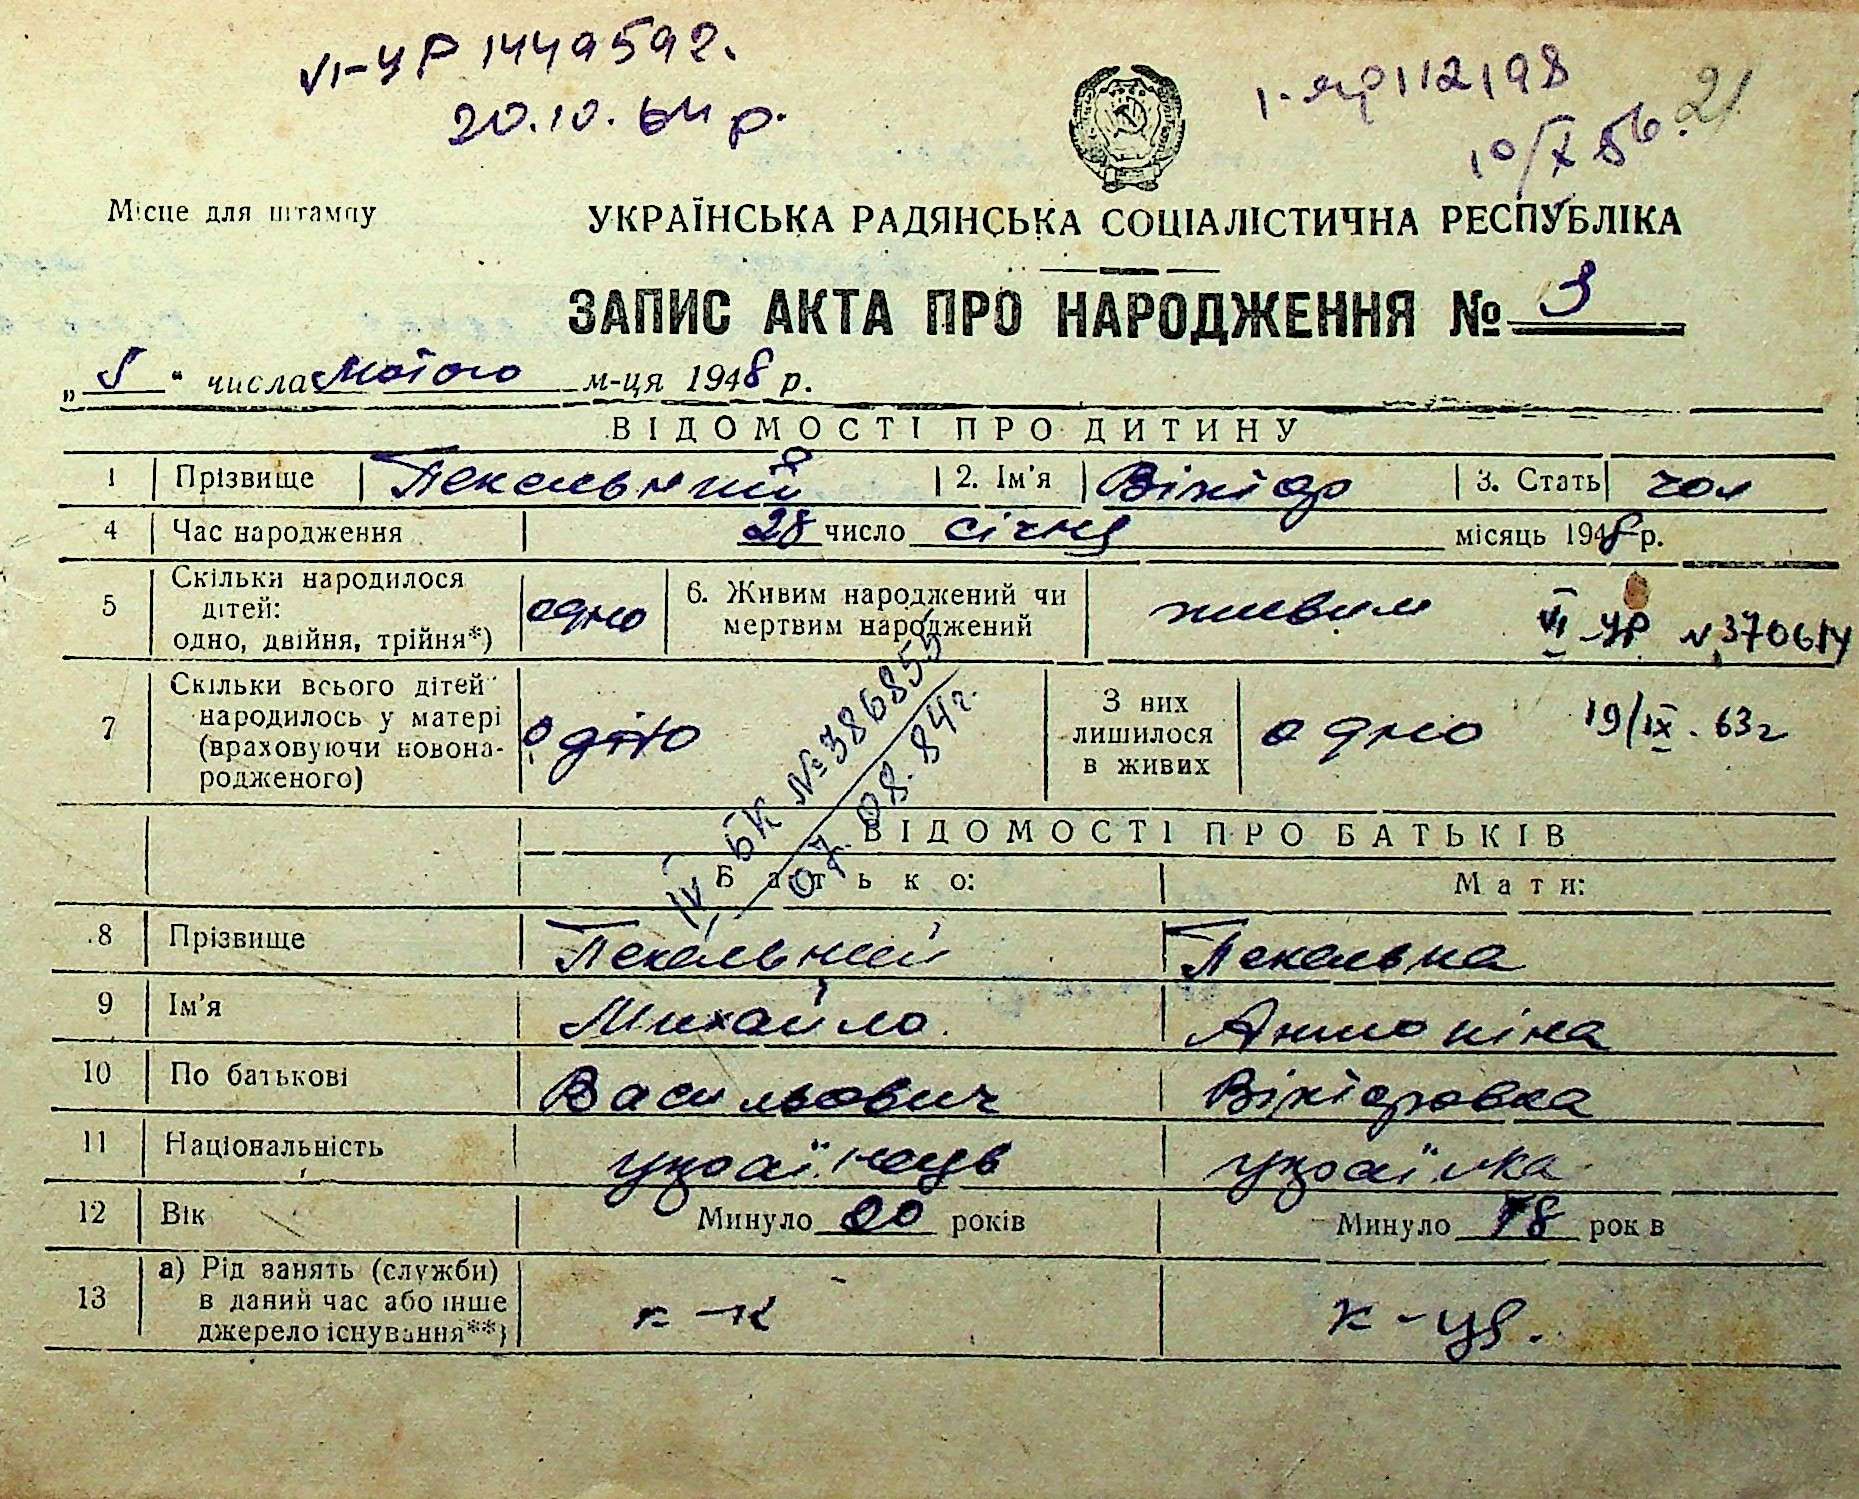 VI-УР 1449592.
20.10.64 р.
112198
10/X 56.
21
Місце для штампу
УКРАЇНСЬКА РАДЯНСЬКА СОЦІАЛІСТИЧНА РЕСПУБЛІКА
ЗАПИС АКТА ПРО НАРОДЖЕННЯ № 3
„ " числа лютого м-ця 1948 р.
ВІДОМОСТІ ПРО ДИТИНУ
1 Прізвище Пекельний 2. Ім'я Віктор 3. Стать чол
4 Час народження 28 число січня місяць 1948 р.
5 Скільки народилося дітей: одно, двійня, трійня*) одно 6. Живим народжений чи мертвим народжений живим
VI-УР № 370614
19/IX. 63г
7 Скільки всього дітей народилось у матері (враховуючи новонародженого) одно З них лишилося в живих одно
IV БК № 386855
07.08.84г.
ВІДОМОСТІ ПРО БАТЬКІВ
Батько: Мати:
8 Прізвище Пекельний Пекельна
9 Ім'я Михайло Антоніна
10 По батькові Васильович Вікторовна
11 Національність українець українка
12 Вік Минуло 20 років Минуло 18 рок в
13 а) Рід занять (служби) в даний час або інше джерело існування**) к-к к-ця.